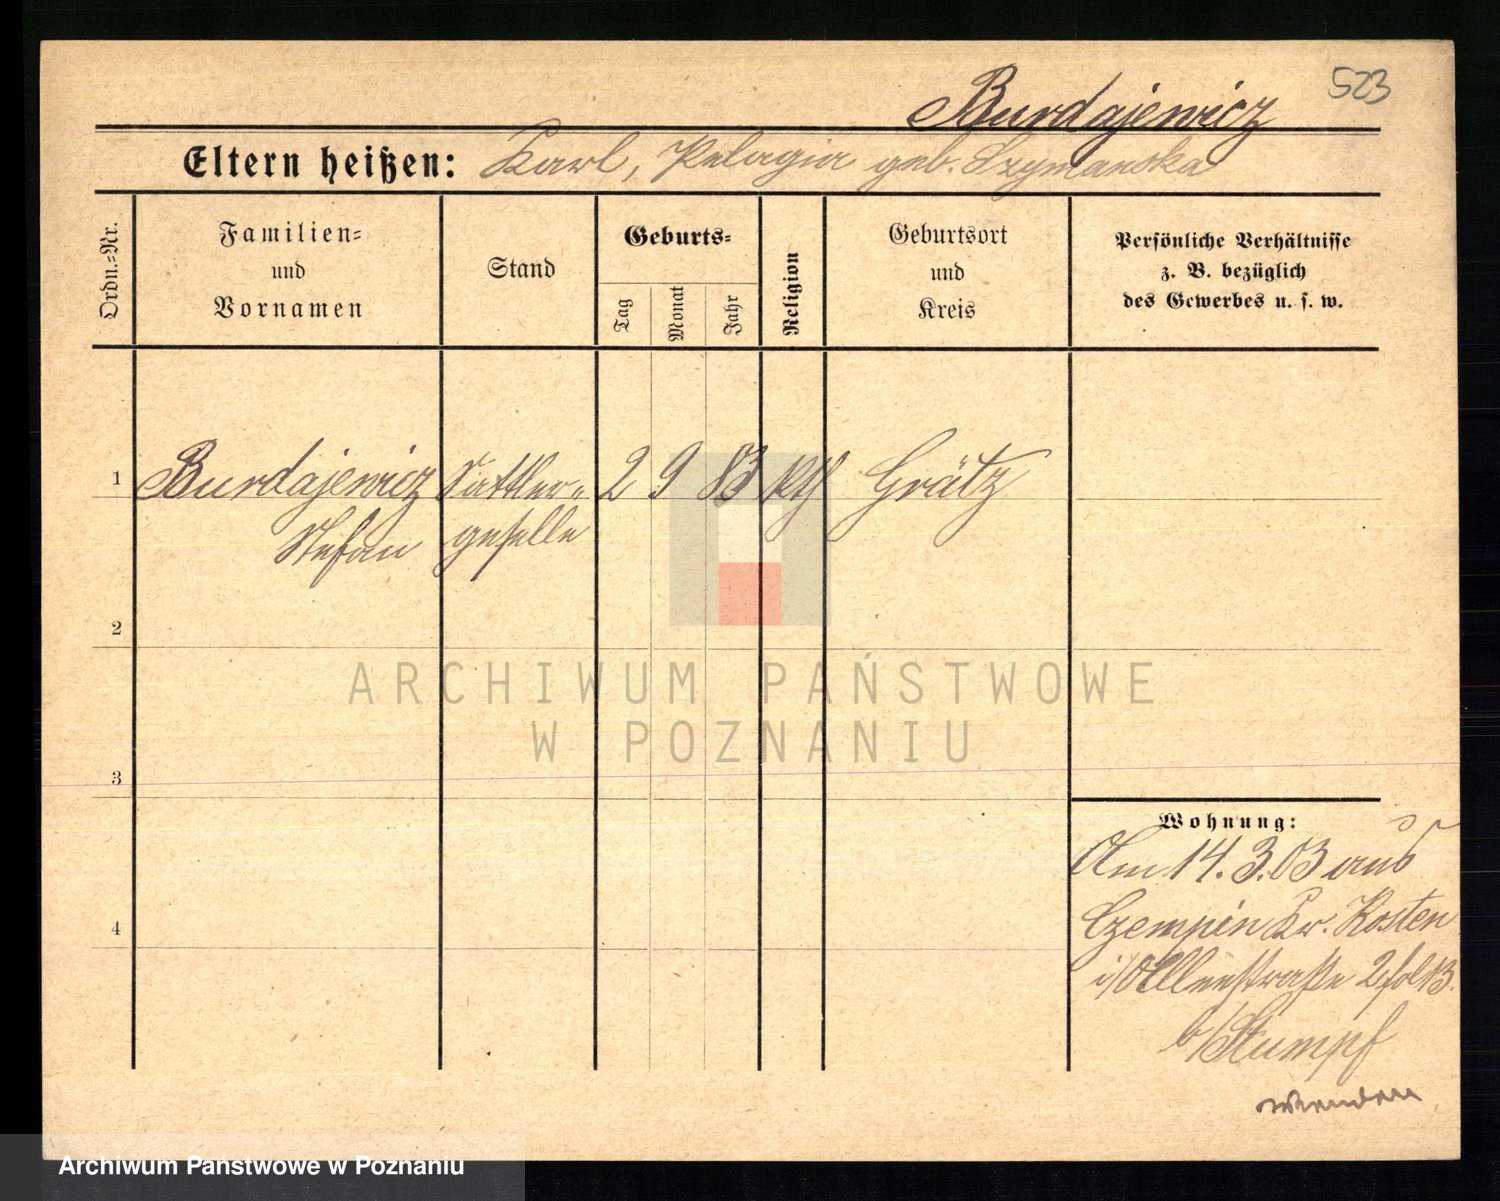 523
Burdajewicz
Eltern heißen: Karl, Pelagia geb. Szymanska
Ordn.-Nr.
Familien-
und
Vornamen
Stand
Geburts-
Tag
Monat
Jahr
Religion
Geburtsort
und
Kreis
Persönliche Verhältnisse
z. B. bezüglich
des Gewerbes u. s. w.
1 Burdajewicz Sattler- 2 9 83 kth Grätz
Stefan geselle
2
ARCHIWUM PAŃSTWOWE
W POZNANIU
3
Wohnung:
Am 14.3.03 aus
Czempin Kr. Kosten
4
2 fol 13.
b/Stumpf
wenden
Archiwum Państwowe w Poznaniu